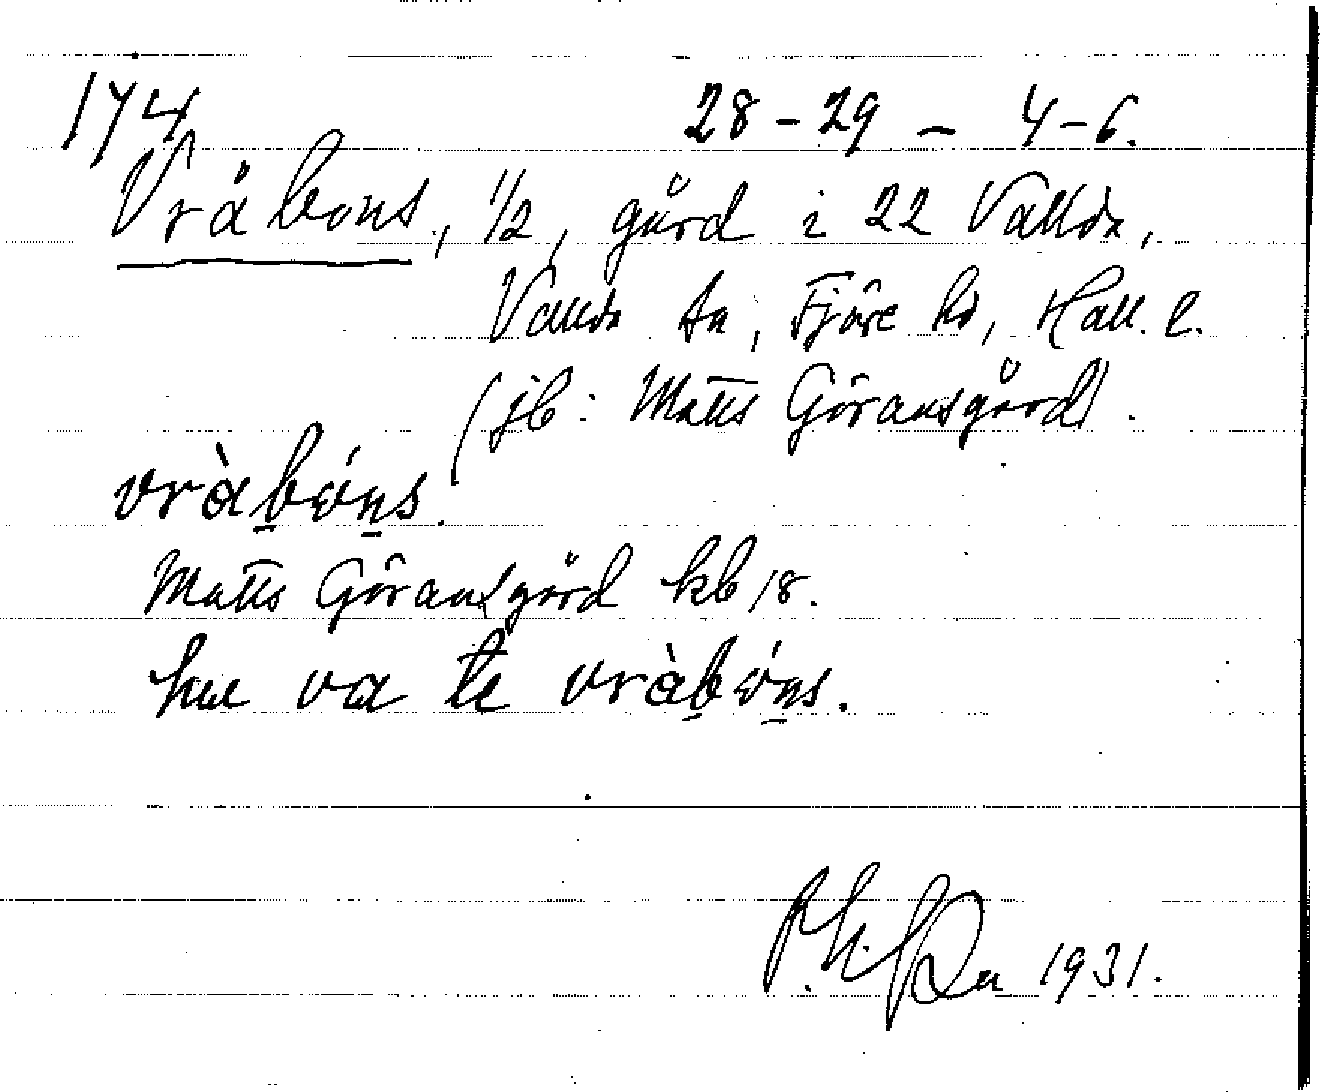 174 28-29 - 4-6.
Vråbons, 1/2, gård i 22 Vallda,
Vallda sn, Fjäre hd, Hall. l.
(jb: Matts Göransgård).
vràbóns.
Matts Göransgård kb 18.
hu va te vràbóns.
1931.